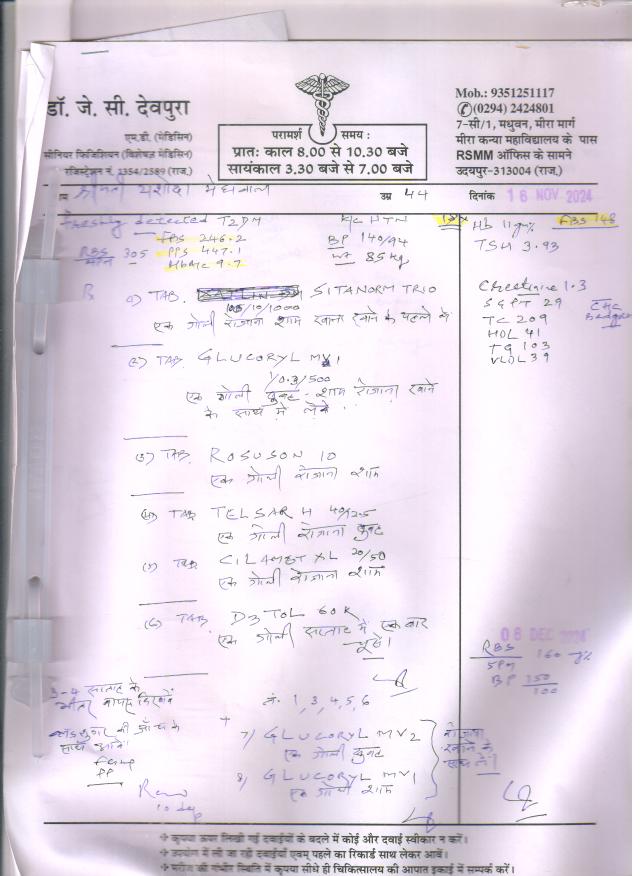 डॉ. जे. सी. देवपुरा
एम.डी. (मेडिसिन)
सीनियर फिजिशियन (विशेषज्ञ मेडिसिन)
रजिस्ट्रेशन नं. 1354/2589 (राज.)
परामर्श समय :
प्रातः काल 8.00 से 10.30 बजे
सायंकाल 3.30 बजे से 7.00 बजे
Mob.: 9351251117
(0294) 2424801
7-सी/1, मधुवन, मीरा मार्ग
मीरा कन्या महाविद्यालय के पास
RSMM ऑफिस के सामने
उदयपुर-313004 (राज.)
श्रीमती यशोदा मेघवाल
उम्र 44
दिनांक 16 NOV 2024
Freshly detected T2DM
K/C HTN
FBS 246.2
PPS 447.1
HbA1c 9.7
RBS 305
BP 140/94
Wt 85 kg
Hb 11 gm%
FBS 148
TSH 3.93
Creatinine 1.3
SGPT 29
TC 209
HDL 41
TG 103
VLDL 39
1) TAB. SITANORM TRIO
100/10/1000
एक गोली रोजाना शाम खाना खाने के पहले लें
2) TAB GLUCORYL MV1
1/0.3/500
एक गोली सुबह - शाम रोजाना खाने
के साथ में लेवें
3) TAB. ROSUSON 10
एक गोली रोजाना शाम
4) TAB TELSAR H 40/12.5
एक गोली रोजाना सुबह
5) TAB CILAMET XL 20/50
एक गोली रोजाना शाम
6) TAB D3 TOL 60K
एक गोली सप्ताह में एक बार
चूसें।
06 DEC 2024
RBS
5PM 160 %
BP 150/100
3-4 सप्ताह के
भीतर वापस दिखावें
ब्लड शुगर की जाँच के
साथ आवें
PP
नं. 1, 3, 4, 5, 6
+
7) GLUCORYL MV2
एक गोली सुबह
8) GLUCORYL MV1
एक गोली शाम
रोजाना
खाने के
साथ लें।
10 day
कृपया ऊपर लिखी गई दवाईयों के बदले में कोई और दवाई स्वीकार न करें।
उपयोग में ली जा रही दवाईयाँ एवम् पहले का रिकार्ड साथ लेकर आवें।
मरीज की गंभीर स्थिति में कृपया सीधे ही चिकित्सालय की आपात इकाई में सम्पर्क करें।